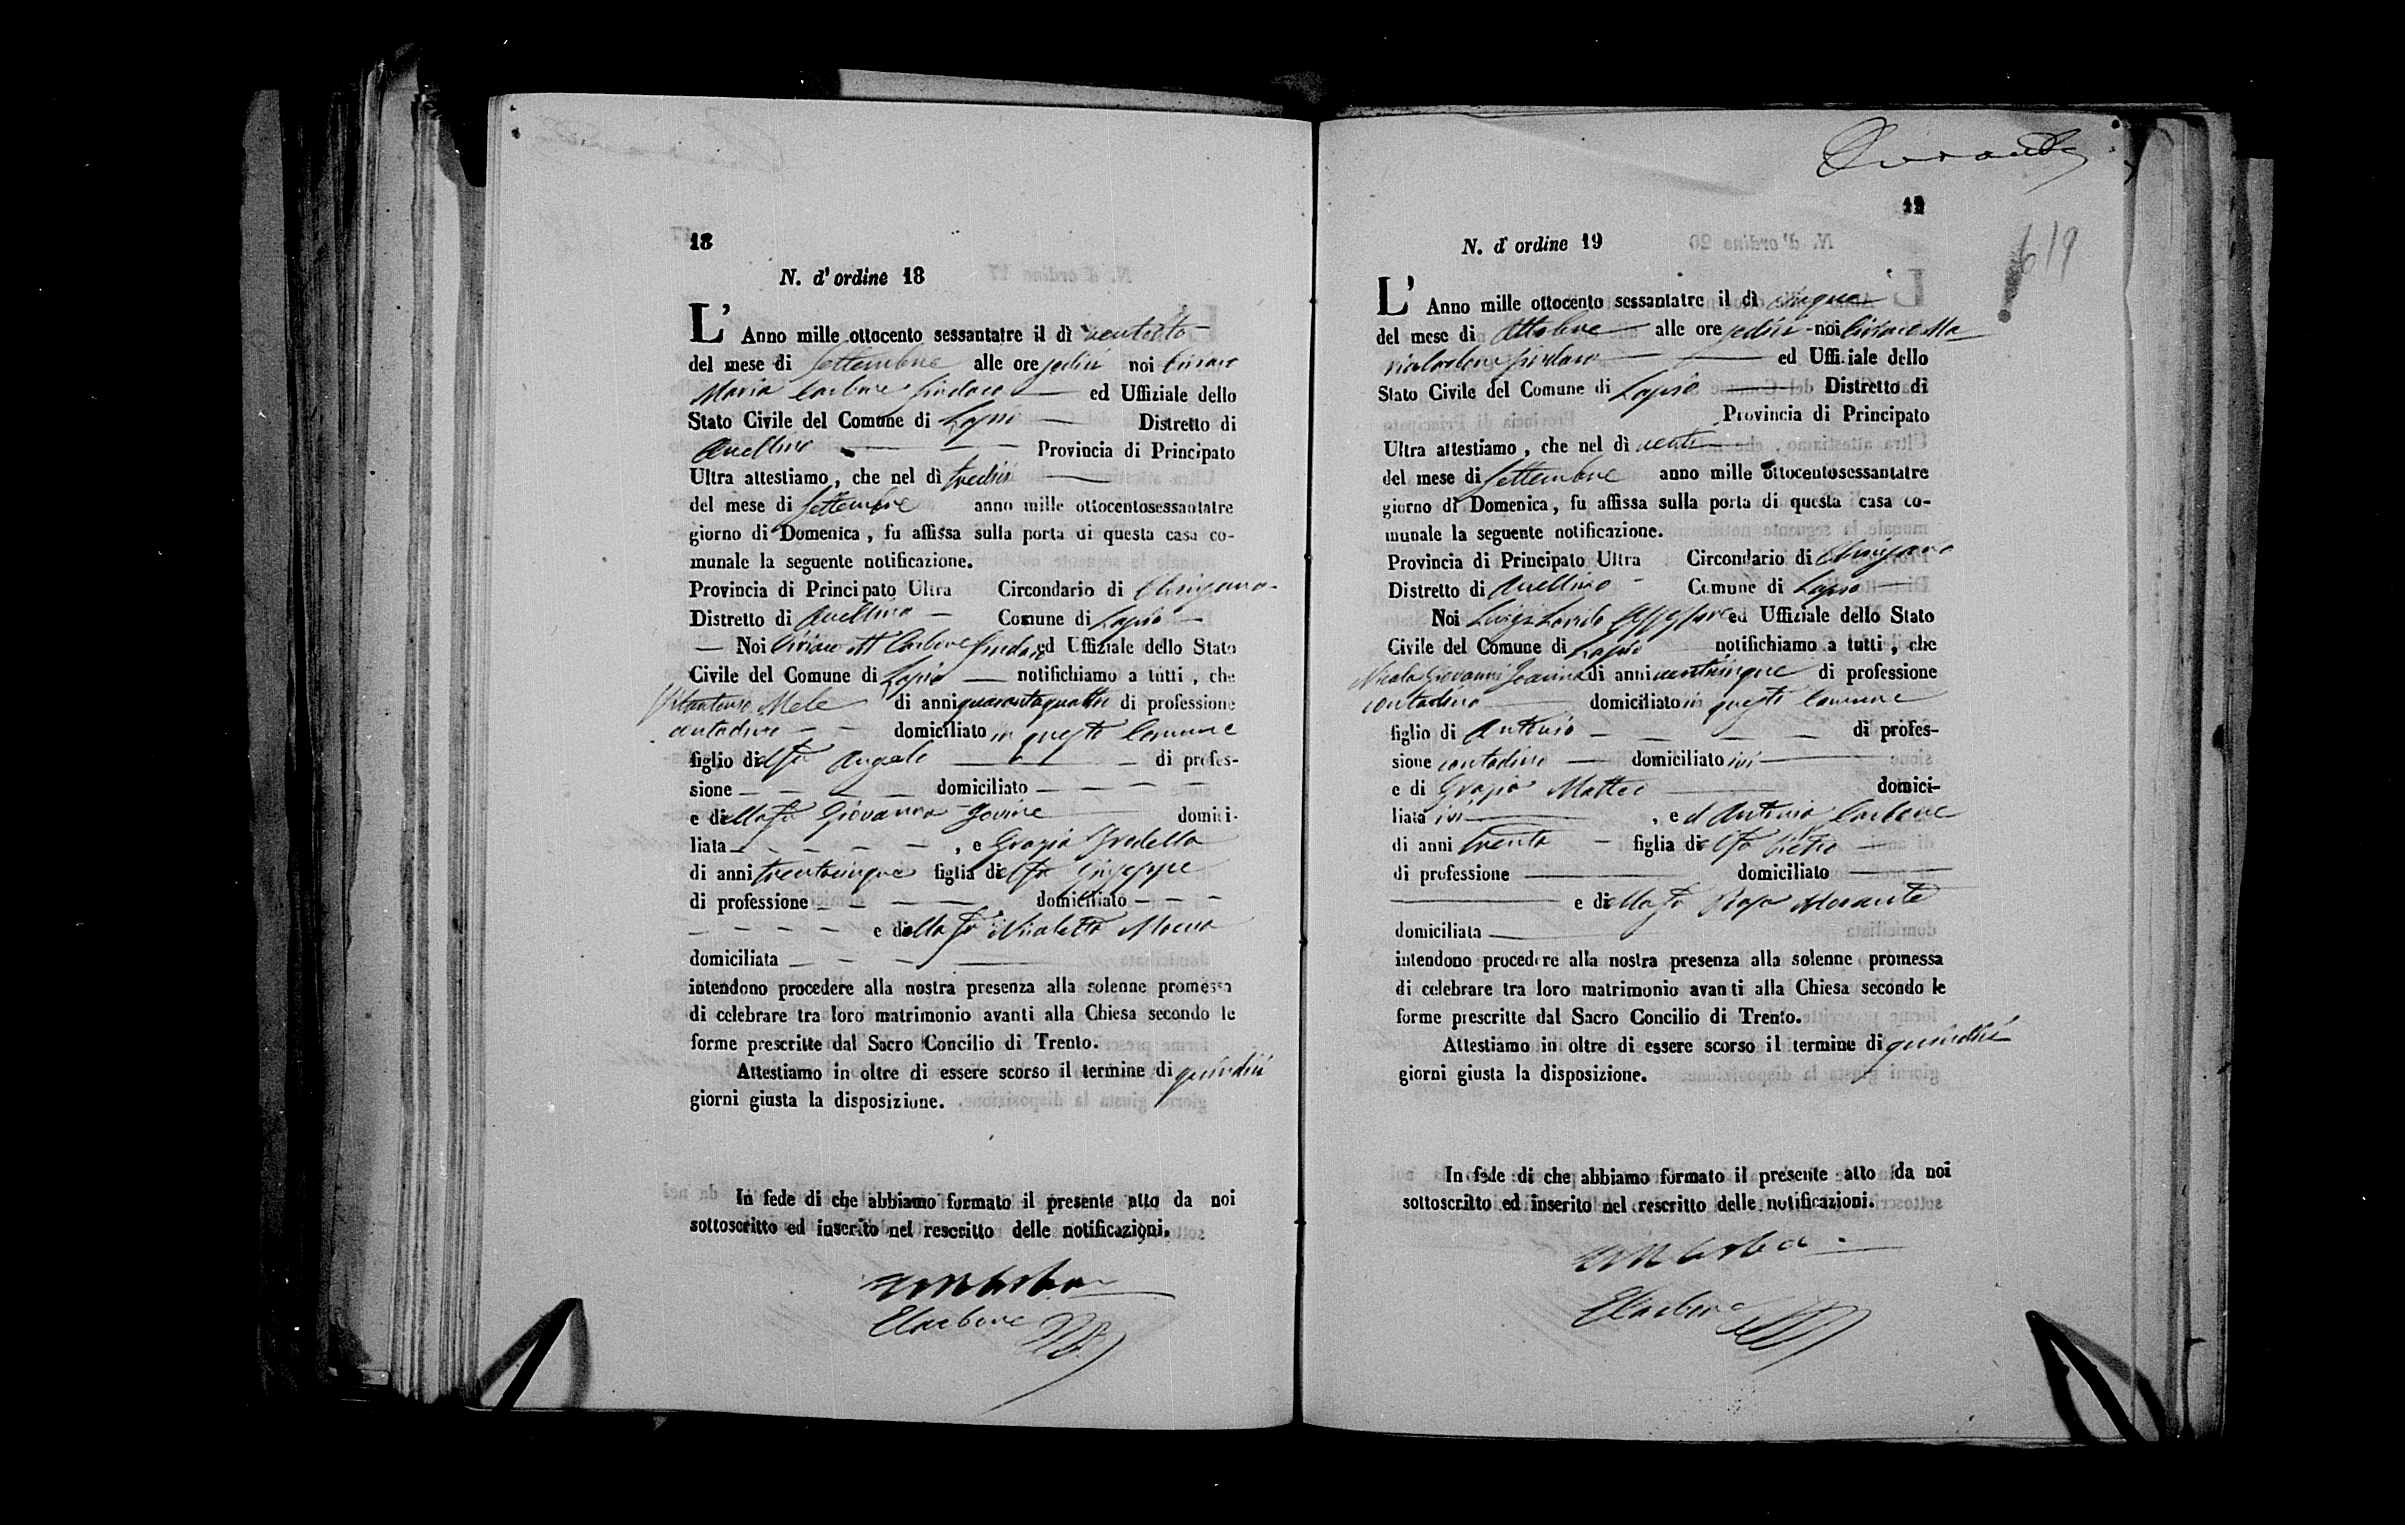 18
N. d' ordine 18
L' Anno mille ottocento sessantatre il dì ventotto
del mese di Settembre alle ore sedici noi Ciriaco
Maria Carbone Sindaco ed Uffiziale dello
Stato Civile del Comune di Lapio Distretto di
Avellino Provincia di Principato
Ultra attestiamo, che nel dì tredici
del mese di Settembre anno mille ottocentosessantatre
giorno di Domenica, fu affissa sulla porta di questa casa co-
munale la seguente notificazione.
Provincia di Principato Ultra Circondario di Chiusano
Distretto di Avellino Comune di Lapio
Noi Ciriaco M Carbone Sindaco ed Uffiziale dello Stato
Civile del Comune di Lapio notifichiamo a tutti, che
Mele di anni quarantaquattro di professione
contadino domiciliato in questo Comune
figlio di Angelo di profes-
sione domiciliato
e della fu Giovanna Jovine domici-
liata, e Grazia
di anni trentacinque figlia del fu Giuseppe
di professione domiciliato
e della fu Nicoletta
domiciliata
intendono procedere alla nostra presenza alla solenne promessa
di celebrare tra loro matrimonio avanti alla Chiesa secondo le
forme prescritte dal Sacro Concilio di Trento.
Attestiamo in oltre di essere scorso il termine di quindici
giorni giusta la disposizione.
In fede di che abbiamo formato il presente atto da noi
sottoscritto ed inserito nel rescritto delle notificazioni.
Carbone
19
N. d' ordine 19
L' Anno mille ottocento sessantatre il dì cinque
del mese di Ottobre alle ore sedici noi Ciriaco Ma
ria Carbone Sindaco ed Uffiziale dello
Stato Civile del Comune di Lapio Distretto di
Provincia di Principato
Ultra attestiamo, che nel dì venti
del mese di Settembre anno mille ottocentosessantatre
giorno di Domenica, fu affissa sulla porta di questa casa co-
munale la seguente notificazione.
Provincia di Principato Ultra Circondario di Chiusano
Distretto di Avellino Comune di Lapio
Noi Luigi Assessore ed Uffiziale dello Stato
Civile del Comune di Lapio notifichiamo a tutti, che
Nicola Giovanni Joanna di anni venticinque di professione
contadino domiciliato in questo Comune
figlio di Antonio di profes-
sione contadino domiciliato ivi
e di Grazia Matteo domici-
liata ivi, e d Antonia Carbone
di anni trenta figlia del fu Pietro
di professione domiciliato
e della fu Rosa Morante
domiciliata
intendono procedere alla nostra presenza alla solenne promessa
di celebrare tra loro matrimonio avanti alla Chiesa secondo le
forme prescritte dal Sacro Concilio di Trento.
Attestiamo in oltre di essere scorso il termine di quindici
giorni giusta la disposizione.
In fede di che abbiamo formato il presente atto da noi
sottoscritto ed inserito nel rescritto delle notificazioni.